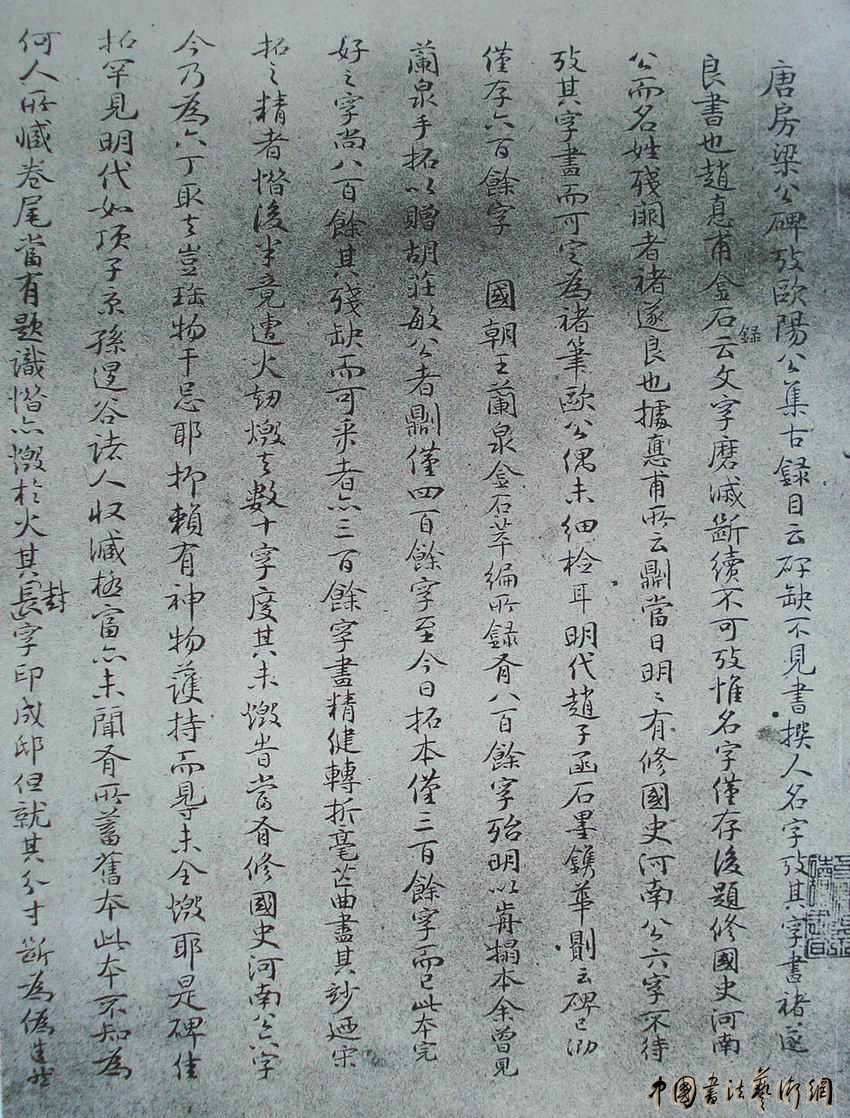 唐房梁公碑攷歐陽公集古錄目云碑缺不見書撰人名字攷其字畫褚遂
良書也趙惪甫金石錄云文字磨滅斷續不可攷惟名字僅存後題修國史河南
公而名姓殘闕者褚遂良也據惪甫所云則當日明明有修國史河南公六字不待
攷其字畫而可定為褚筆歐公偶未細檢耳明代趙子函石墨鐫華則云碑已泐
僅存六百餘字 國朝王蘭泉金石萃編所錄有八百餘字殆明以前搨本余曾見
蘭泉手拓以贈胡莊敏公者則僅四百餘字至今日拓本僅三百餘字而已此本完
好之字尚八百餘其殘缺而可采者亦三百餘字畫精健轉折毫芒曲盡其妙迺宋
拓之精者惜後半竟遭火劫燬去數十字度其未燬昔當有修國史河南公六字
今乃為六丁取去豈珍物干忌耶抑賴有神物護持而得未全燬耶是碑佳
拓罕見明代如項子京孫退谷諸人收藏極富亦未聞有所蓄舊本此本不知為
何人所藏卷尾當有題識惜亦燬於火其長字印成邸但就其分寸斷為偽
封
中國書法藝術網